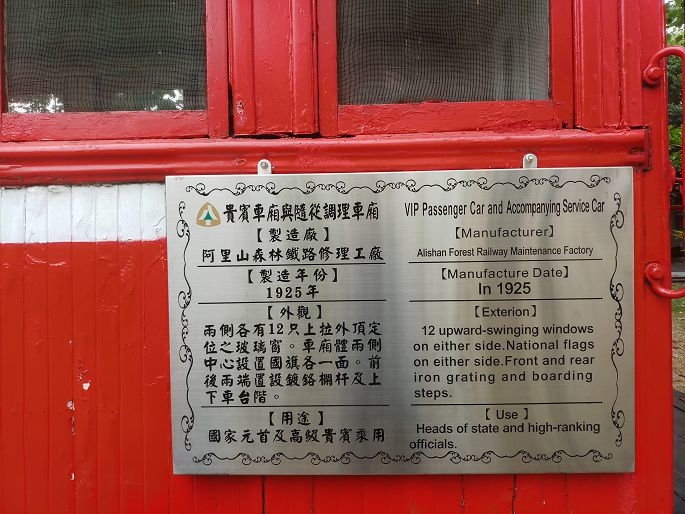 貴賓車廂與隨從調理車廂
【製造廠】
阿里山森林鐵路修理工廠
【製造年份】
1925年
【外觀】
兩側各有12只上拉外頂定
位之玻璃窗。車廂體兩側
中心設置國旗各一面。前
後兩端置設鍍鉻欄杆及上
下車台階。
【用途】
國家元首及高級貴賓乘用
VIP Passenger Car and Accompanying Service Car
【Manufacturer】
Alishan Forest Railway Maintenance Factory
【Manufacture Date】
In 1925
【Exterion】
12 upward-swinging windows
on either side.National flags
on either side.Front and rear
iron grating and boarding
steps.
【Use】
Heads of state and high-ranking
officials.